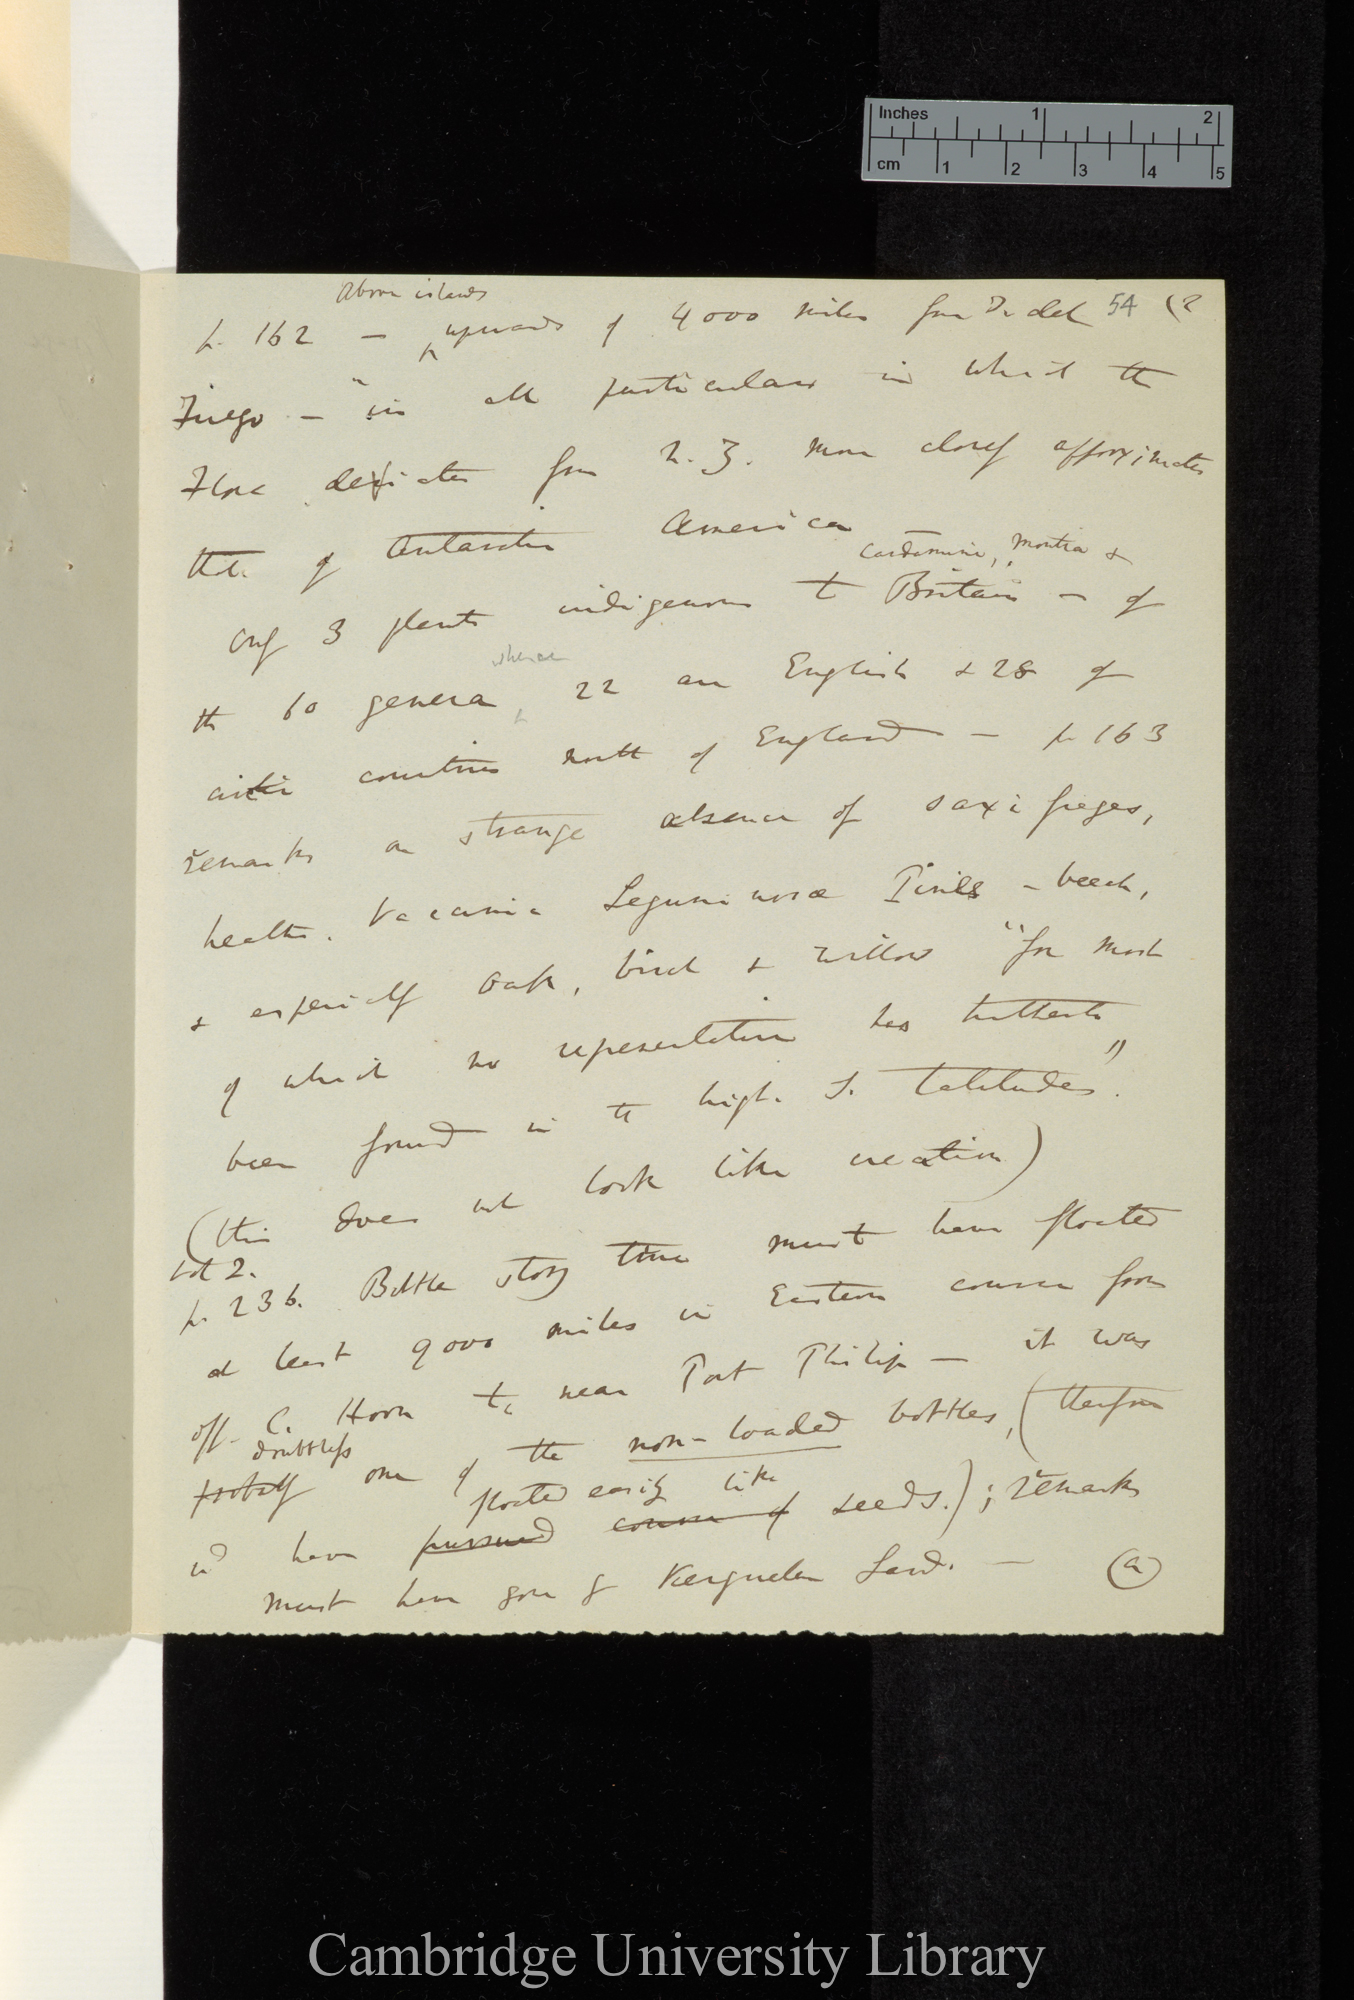 Inches 1 2
cm 1 2 3 4 5
54 (2
Above islands
p. 162 — upwards of 4000 miles from T. del
Fuego — "in all particulars in which the
Flora deviates from N. Z. more closely approximates
that of Antarctic America
Cardamine, Montia &
Only 3 plants indigenous to Britain — of
whence
the 60 genera 22 are English & 28 of
arctic countries north of England — p 163
remarks on strange absence of saxifrages,
heaths. Vaccinia Leguminosæ Pines — beech,
& especially oak, birch & willow "for most
of which no representative has hitherto
been found in the high S. latitudes".
(this does not look like creation)
Vol 2.
p. 236. Bottle story time must have floated
at least 9000 miles in Eastern course from
off C. Horn to near Port Philip — it was
doubtless
probably one of the non-loaded bottles, (therefore
floated easily like
wd have pursued course of seeds.); remarks
must have gone by Kerguelen Land. — (a)
Cambridge University Library